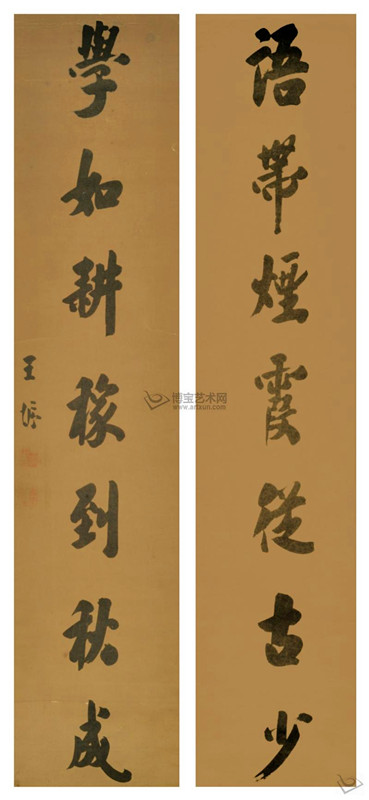 語帶煙霞從古少
學如耕稼到秋成
王墀
博宝艺术网
www.artxun.com